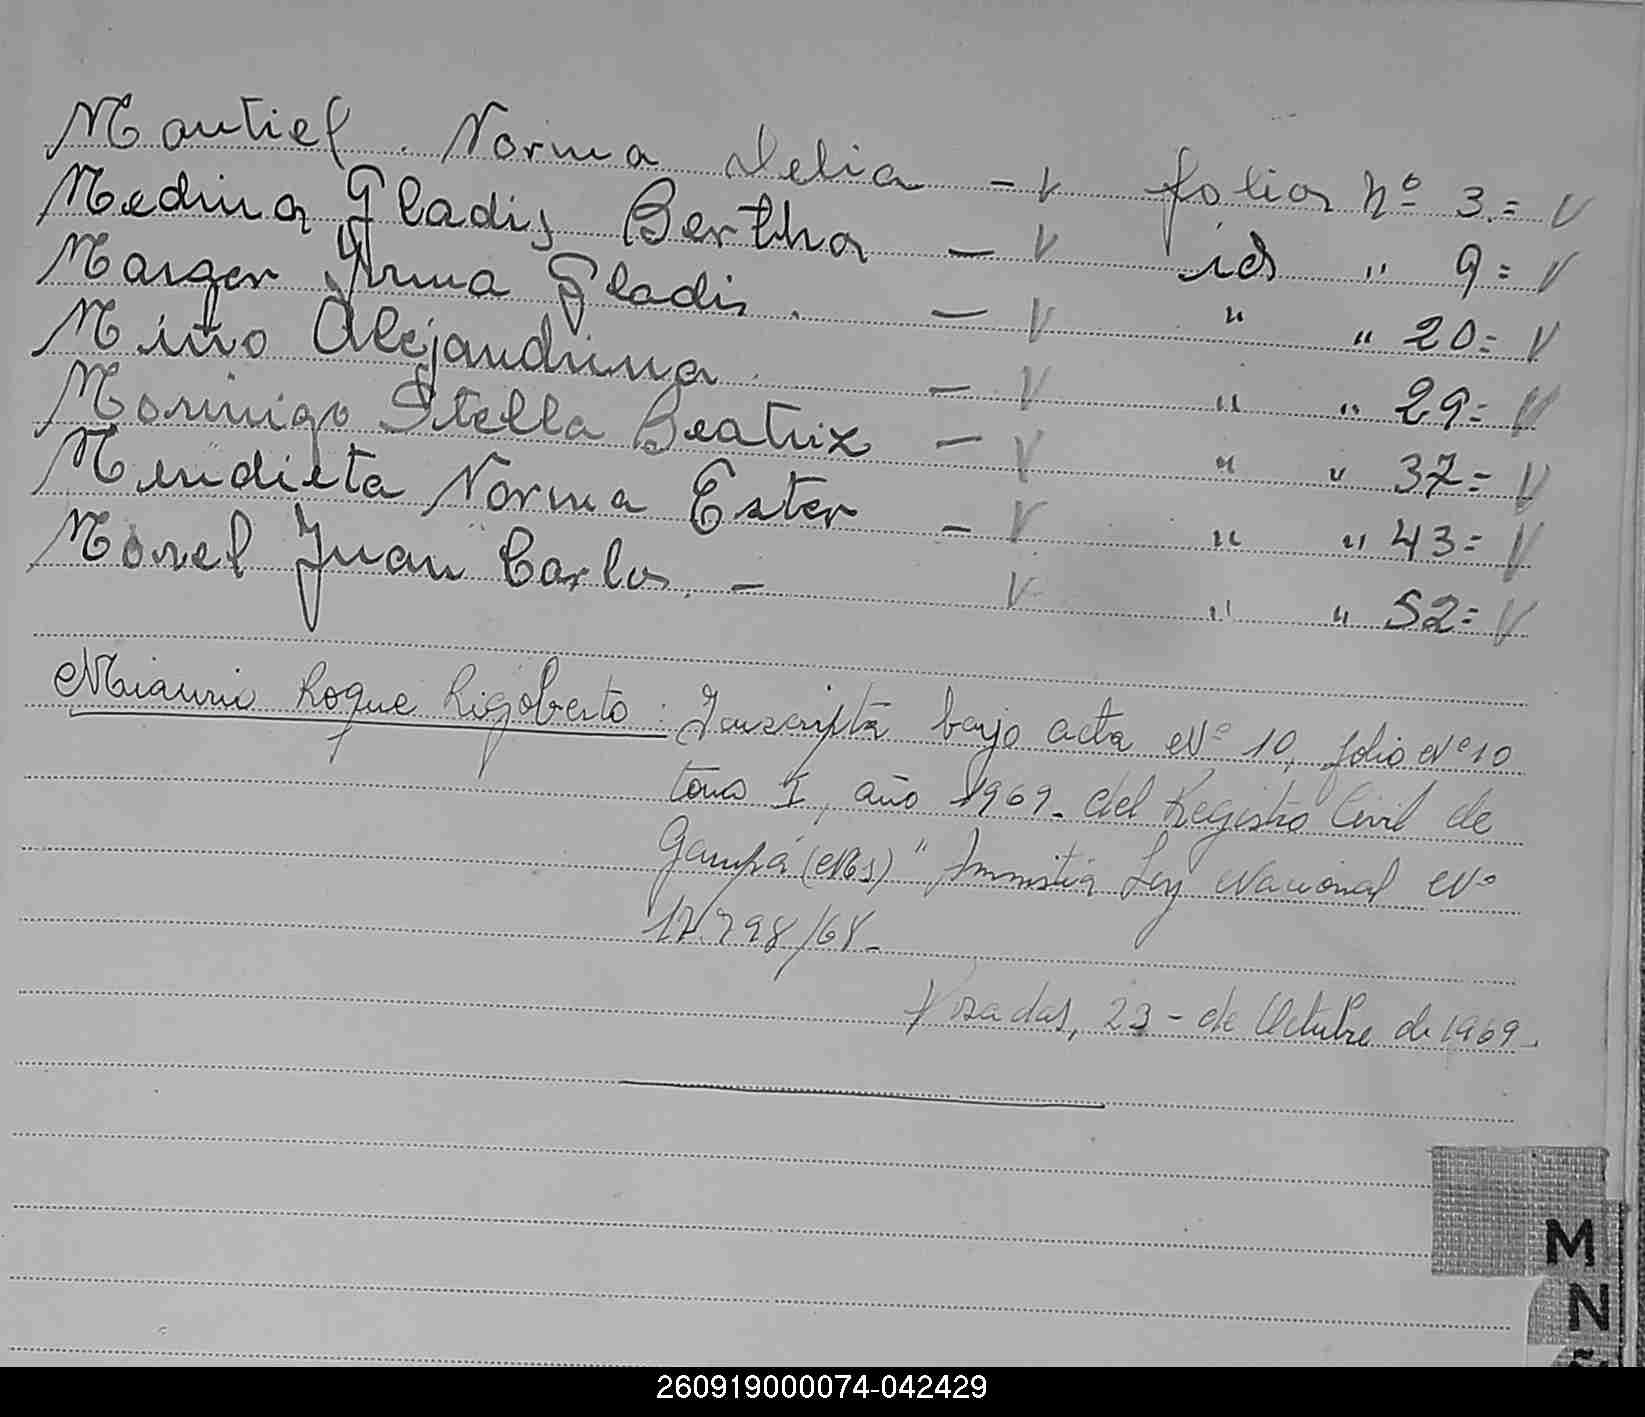 Montiel. Norma Delia - V folios nº 3.= V
Medina Gladis Bertha - V id " 9= V
Marger Yrma Gladis. - V " " 20= V
Miño Alejandrina - V " " 29= V
Morinigo Stella Beatriz - V " " 37= V
Mendieta Norma Ester - V " " 43= V
Morel Juan Carlos. - V " " 52= V
Roque Rigoberto: Inscripta bajo acta Nº 10, folio Nº 10
tomo I, año 1969- del Registro Civil de
Garupá (Ms) " Amnistia Ley Nacional Nº
17.798/68-
Posadas, 23 - de Octubre de 1969-
M
N
Ñ
260919000074-042429